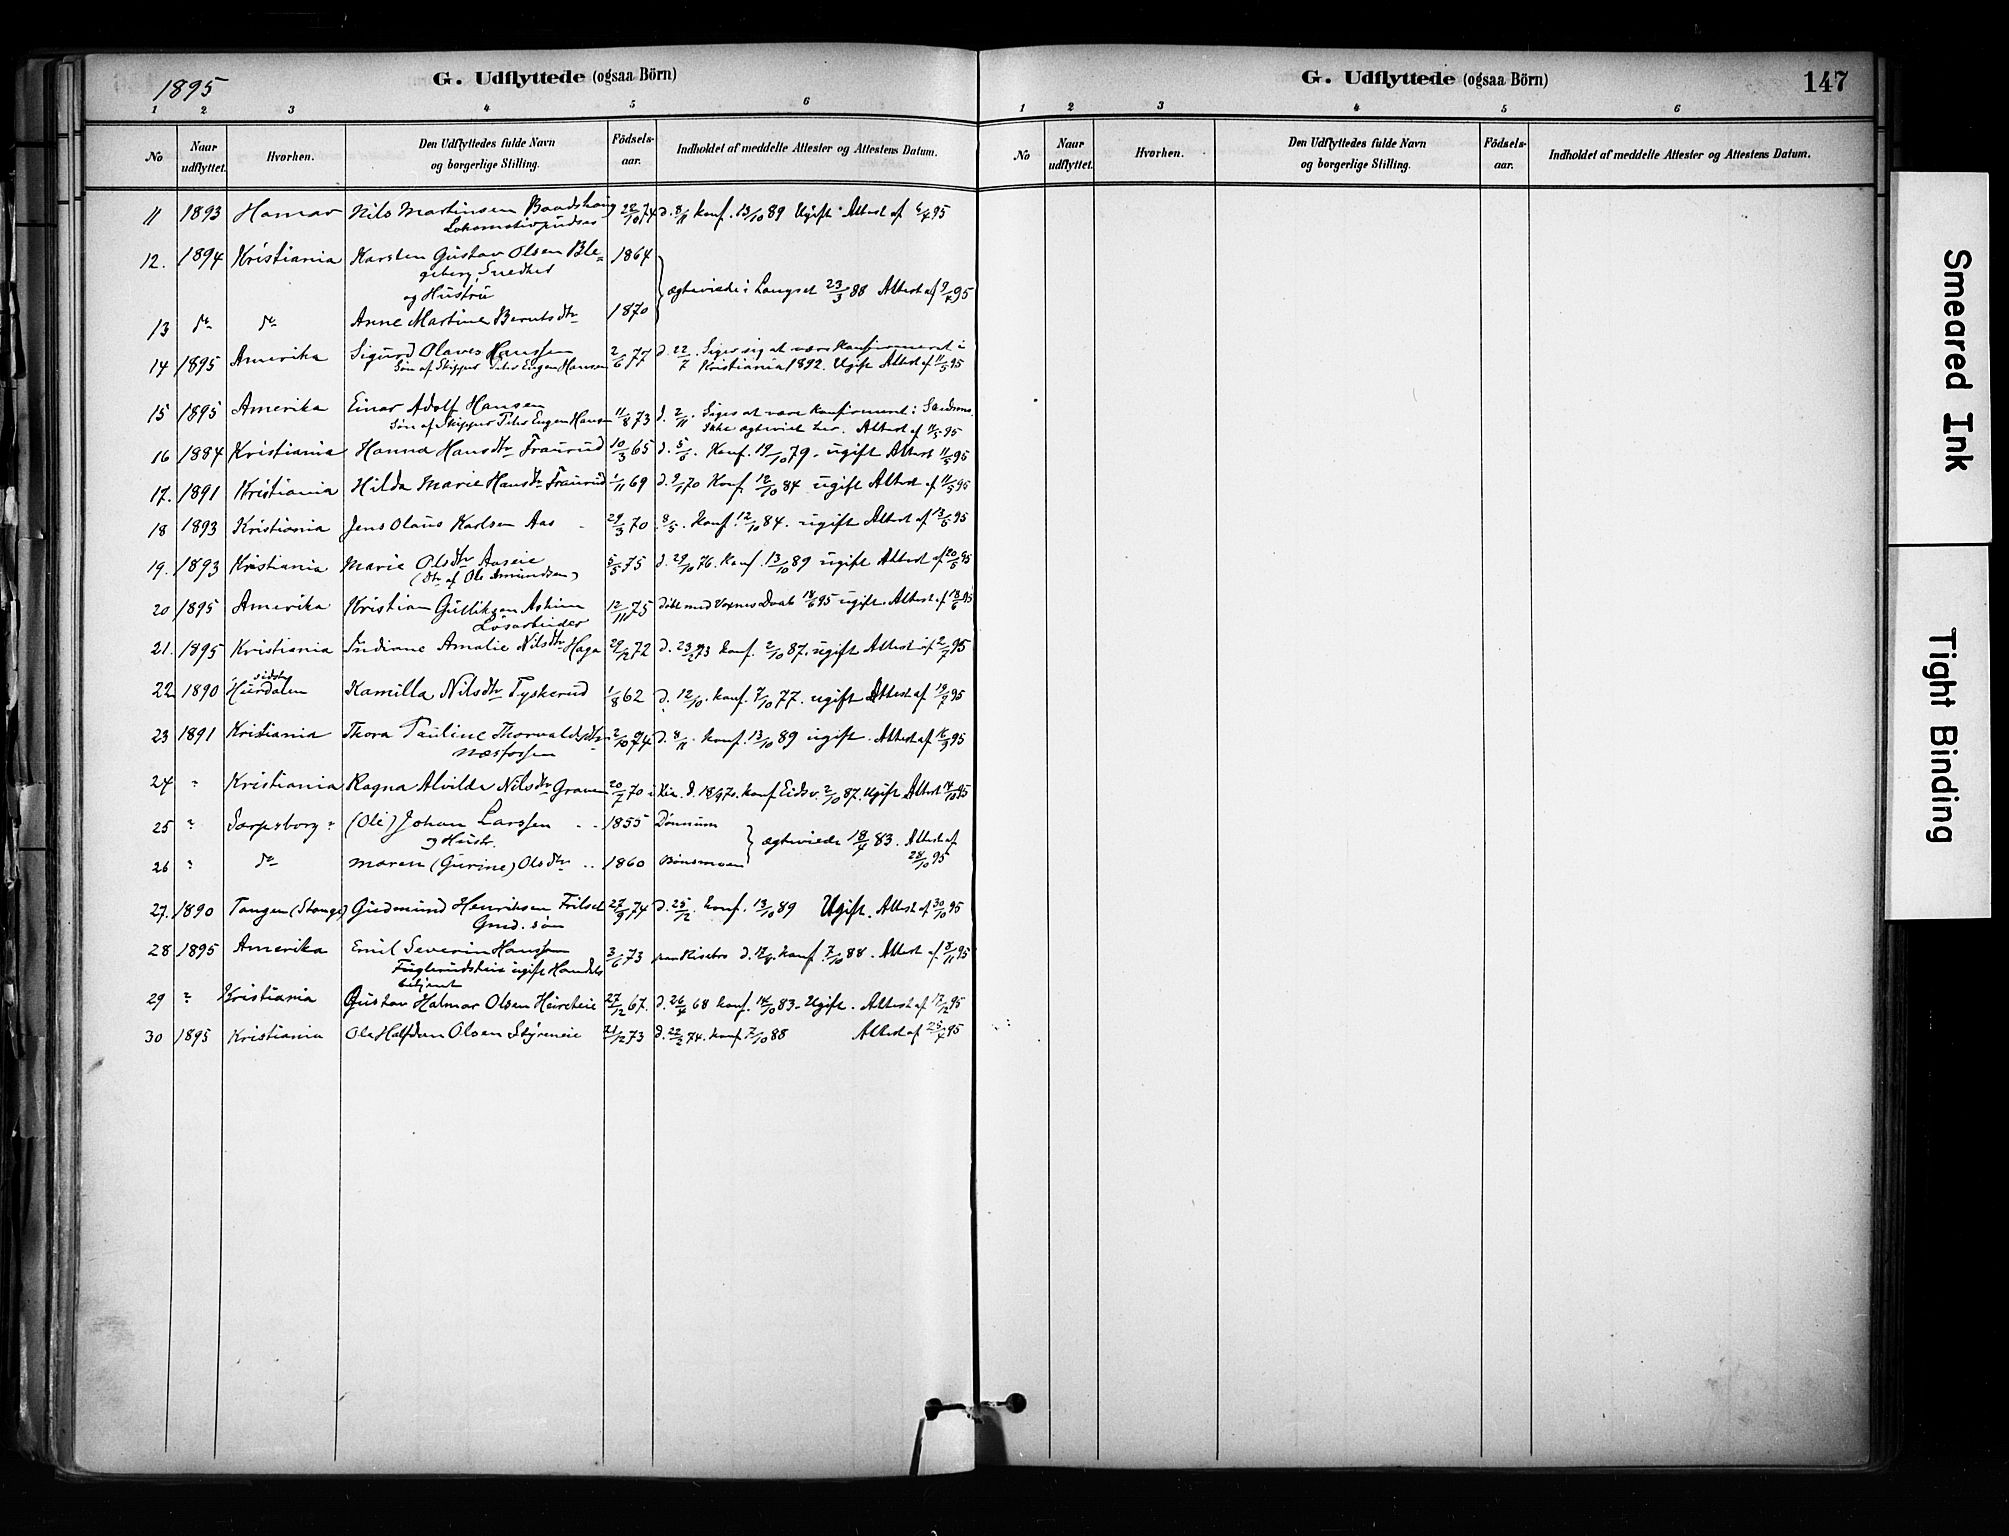 1895
G. Udflyttede (ogsaa Börn)
1 2 3 4 5 6
No
Naar udflyttet.
Hvorhen.
Den Udflyttedes fulde Navn og borgerlige Stilling.
Födsels-aar.
Indholdet af meddelte Attester og Attestens Datum.
11 1893 Hamar Nils Martinsen Baadshaug 28/10 74 d. 8/11 konf. 13/10 89 Ugift Attest af 6/4 95
Lokomotivpudser
12. 1894 Kristiania Karsten Gustav Olsen Ble= 1864
geberg, Snedker
og Hustru
ægteviede i Langset 23/3 88 Attest af 9/4 95
13 do do Anne Martine Berntsdtr 1870
14 1895 Amerika Sigurd Olaves Hanssen 2/6 77 d. 22/7. Siges sig at være konfirmeret i
Søn af Skipper Peter Eugen Hansen Kristiania 1892. Ugift Attest af 11/5 95
15 1895 Amerika Einar Adolf Hansen 11/8 73 d. 2/11. Siges at være konfirmeret i
Søn af Skipper Peter Eugen Hansen Ikke ægteviet her. Attest af 11/5 95
16 1884 Kristiania Hanna Hansdtr Traurud 10/3 65 d. 5/6. Konf. 19/10 79. ugift Attest 11/5 95
17. 1891 Kristiania Hilda Marie Hansdtr Traurud 1/11 69 d. 2/1 70 Konf. 12/10 84 ugift Attest af 11/5 95
18 1893 Kristiania Jens Olaus Karlsen Aas 29/3 70 8/5. Konf. 12/10 84. ugift Attest af 13/5 95
19. 1893 Kristiania Marie Olsdtr Aaseie 5/5 75 d. 29/10 76. Konf. 13/10 89 ugift Attest af 20/5 95
(Dtr af Ole Amundsen)
20 1895 Amerika Kristian Gulliksen Askim 12/11 75 Døbt med Voxnes Daab 18/6 95 ugift. Attest af 18/6 95
Løsarbeider
21. 1895 Kristiania Indiane Amalie Nilsdtr Haga 29/12 72 d. 23/2 73 konf. 2/10 87. ugift Attest af 2/7 95
22 1890 sidst
Hurdalen Kamilla Nilsdtr Tyskerud 1/8 62 d. 12/10. konf. 7/10 77. ugift Attest af 19/7 95
23 1891 Kristiania Thora Pauline Thorvaldsdtr 2/10 74 d. 8/11. konf. 13/10 89 ugift. Attest af 16/9 95
Næsfossen
24 " Kristiania Ragna Alvilde Nilsdtr Graven 20/7 70 i Kra. d. konf Eidsv. 2/10 87. Ugift Attest 14/10 95
25 " Sarpsborg " (Ole) Johan Larssen 1855 Dønnum
og Hustr.
ægteviede 18/4 83. Attest af
28/10 95
26 " do Maren (Gurine) Olsdtr 1860 Bønsmoen
27. 1890 Tangen (Stange) Gudmund Henriksen Frilset 27/9 74 d. 25/12. konf. 13/10 89 Ugift. Attest af 30/10 95
Gmd. søn
28 1895 Amerika Emil Severin Hanssen 3/6 73 paa Risebro d. 17/8. konf. 7/10 88. Attest af 8/11 95
Fuglerudsheie ugift Handels
betjent
29 " Kristiania Gustav Halmar Olsen 27/12 67. d. 26/4 68 konf. 14/10 83. Ugift. Attest af 17/12 95
30 1895 Kristiania Ole Halfdan Olsen Styreneie 21/12 73 d. 22/2 74. konf. 7/10 88 Attest af 25/4 95
G. Udflyttede (ogsaa Börn)
147
1 2 3 4 5 6
No
Naar udflyttet.
Hvorhen.
Den Udflyttedes fulde Navn og borgerlige Stilling.
Födsels-aar.
Indholdet af meddelte Attester og Attestens Datum.
Smeared Ink
Tight Binding